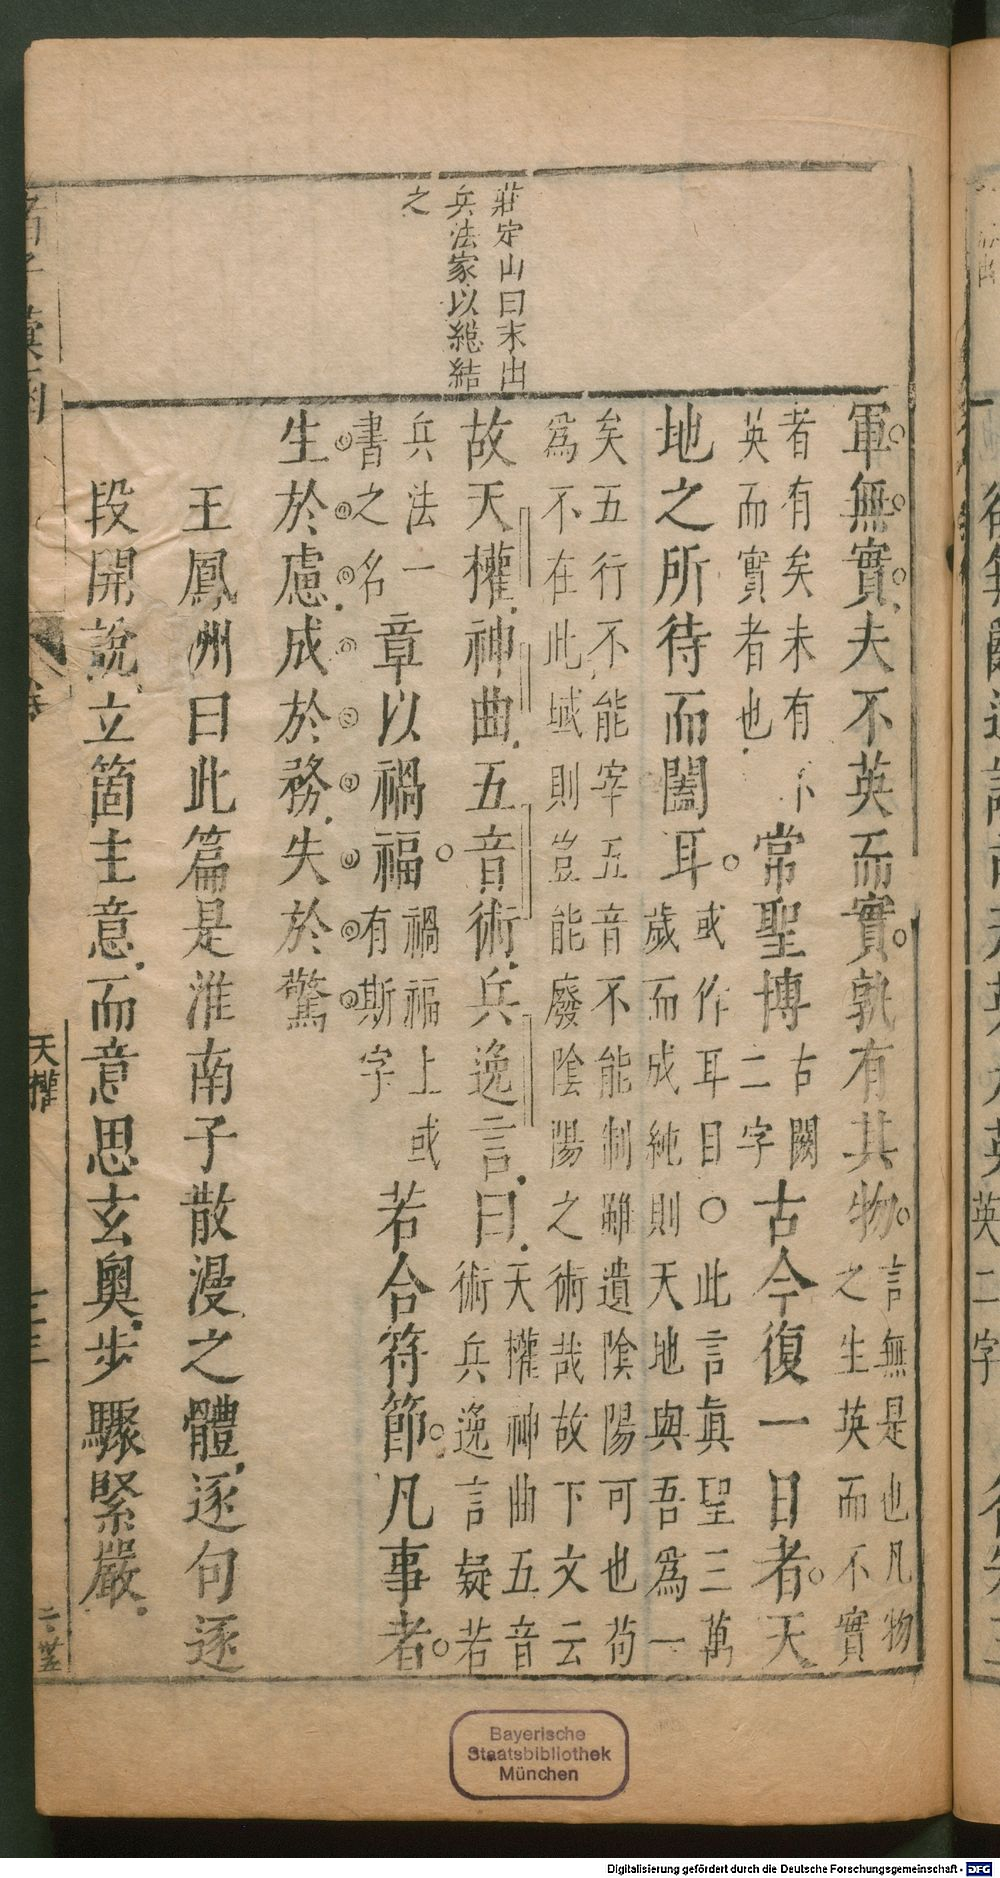 莊定山曰末出
兵法家以總結
之
軍無實夫不英而實孰有其物言無是也凡物
之生英而不實
者有矣未有
英而實者也
常聖博古闕
二字
古今復一日者天
地之所待而闔耳或作耳目○此言眞聖三萬
歲而成純則天地與吾爲一
矣五行不能宰五音不能制雖遺陰陽可也苟
爲不在此域則豈能廢陰陽之術哉故下文云
故天權神曲五音術兵逸言曰天權神曲五音
術兵逸言疑若
兵法一
書之名
章以禍福禍福上或
有斯字
若合符節凡事者
生於慮成於務失於驚
王鳳洲曰此篇是淮南子散漫之體逐句逐
段開說立箇主意而意思玄奧步驟緊嚴
天權
英二字
Bayerische
Staatsbibliothek
München
Digitalisierung gefördert durch die Deutsche Forschungsgemeinschaft - DFG